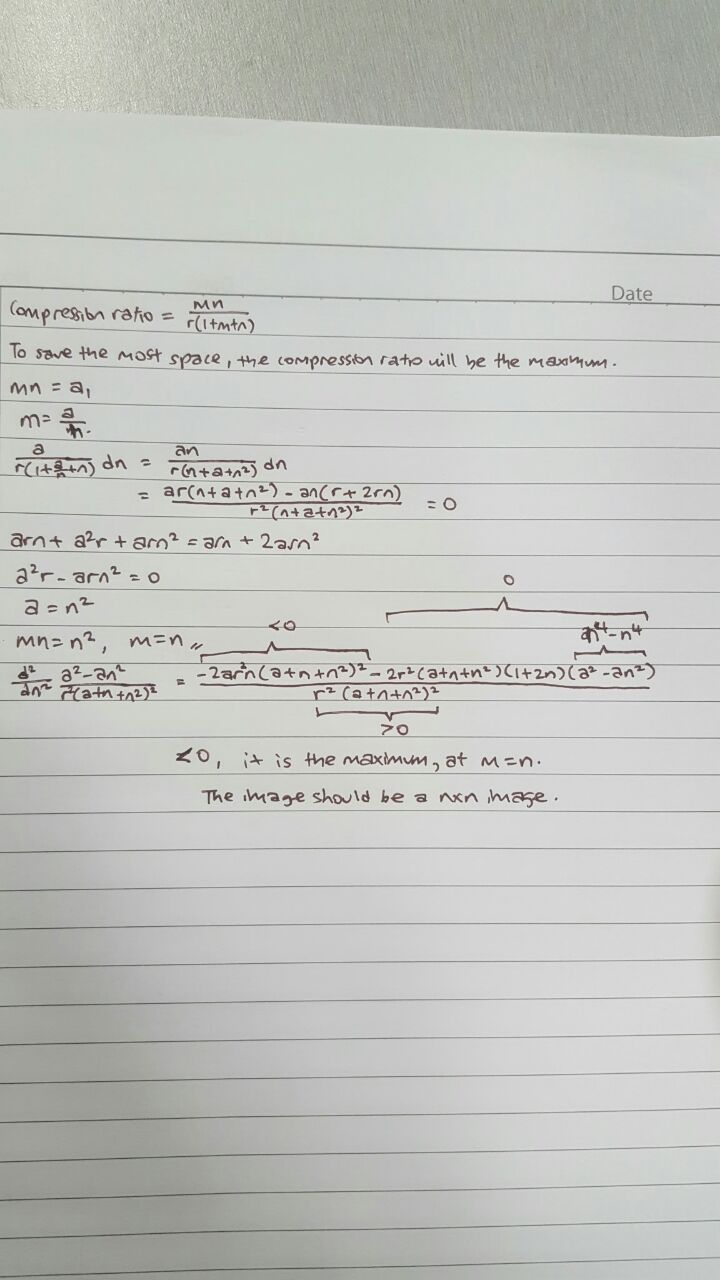 Date
Compression ratio = mn / r(1+m+n)
To save the most space, the compression ratio will be the maximum.
mn = a,
m = a/n.
a / r(1+a/n+n) dn = an / r(n+a+n²) dn
= ar(n+a+n²) - an(r+2rn) / r²(n+a+n²)² = 0
arn + a²r + arn² = arn + 2arn²
a²r - arn² = 0
0
a = n²
<0
mn = n², m = n,,
n⁴-n⁴
d²/dn² a²-an² / r(a+n+n²)² = -2ar²n(a+n+n²)² - 2r²(a+n+n²)(1+2n)(a²-an²) / r²(a+n+n²)²
>0
<0, it is the maximum, at m=n.
The image should be a nxn image.